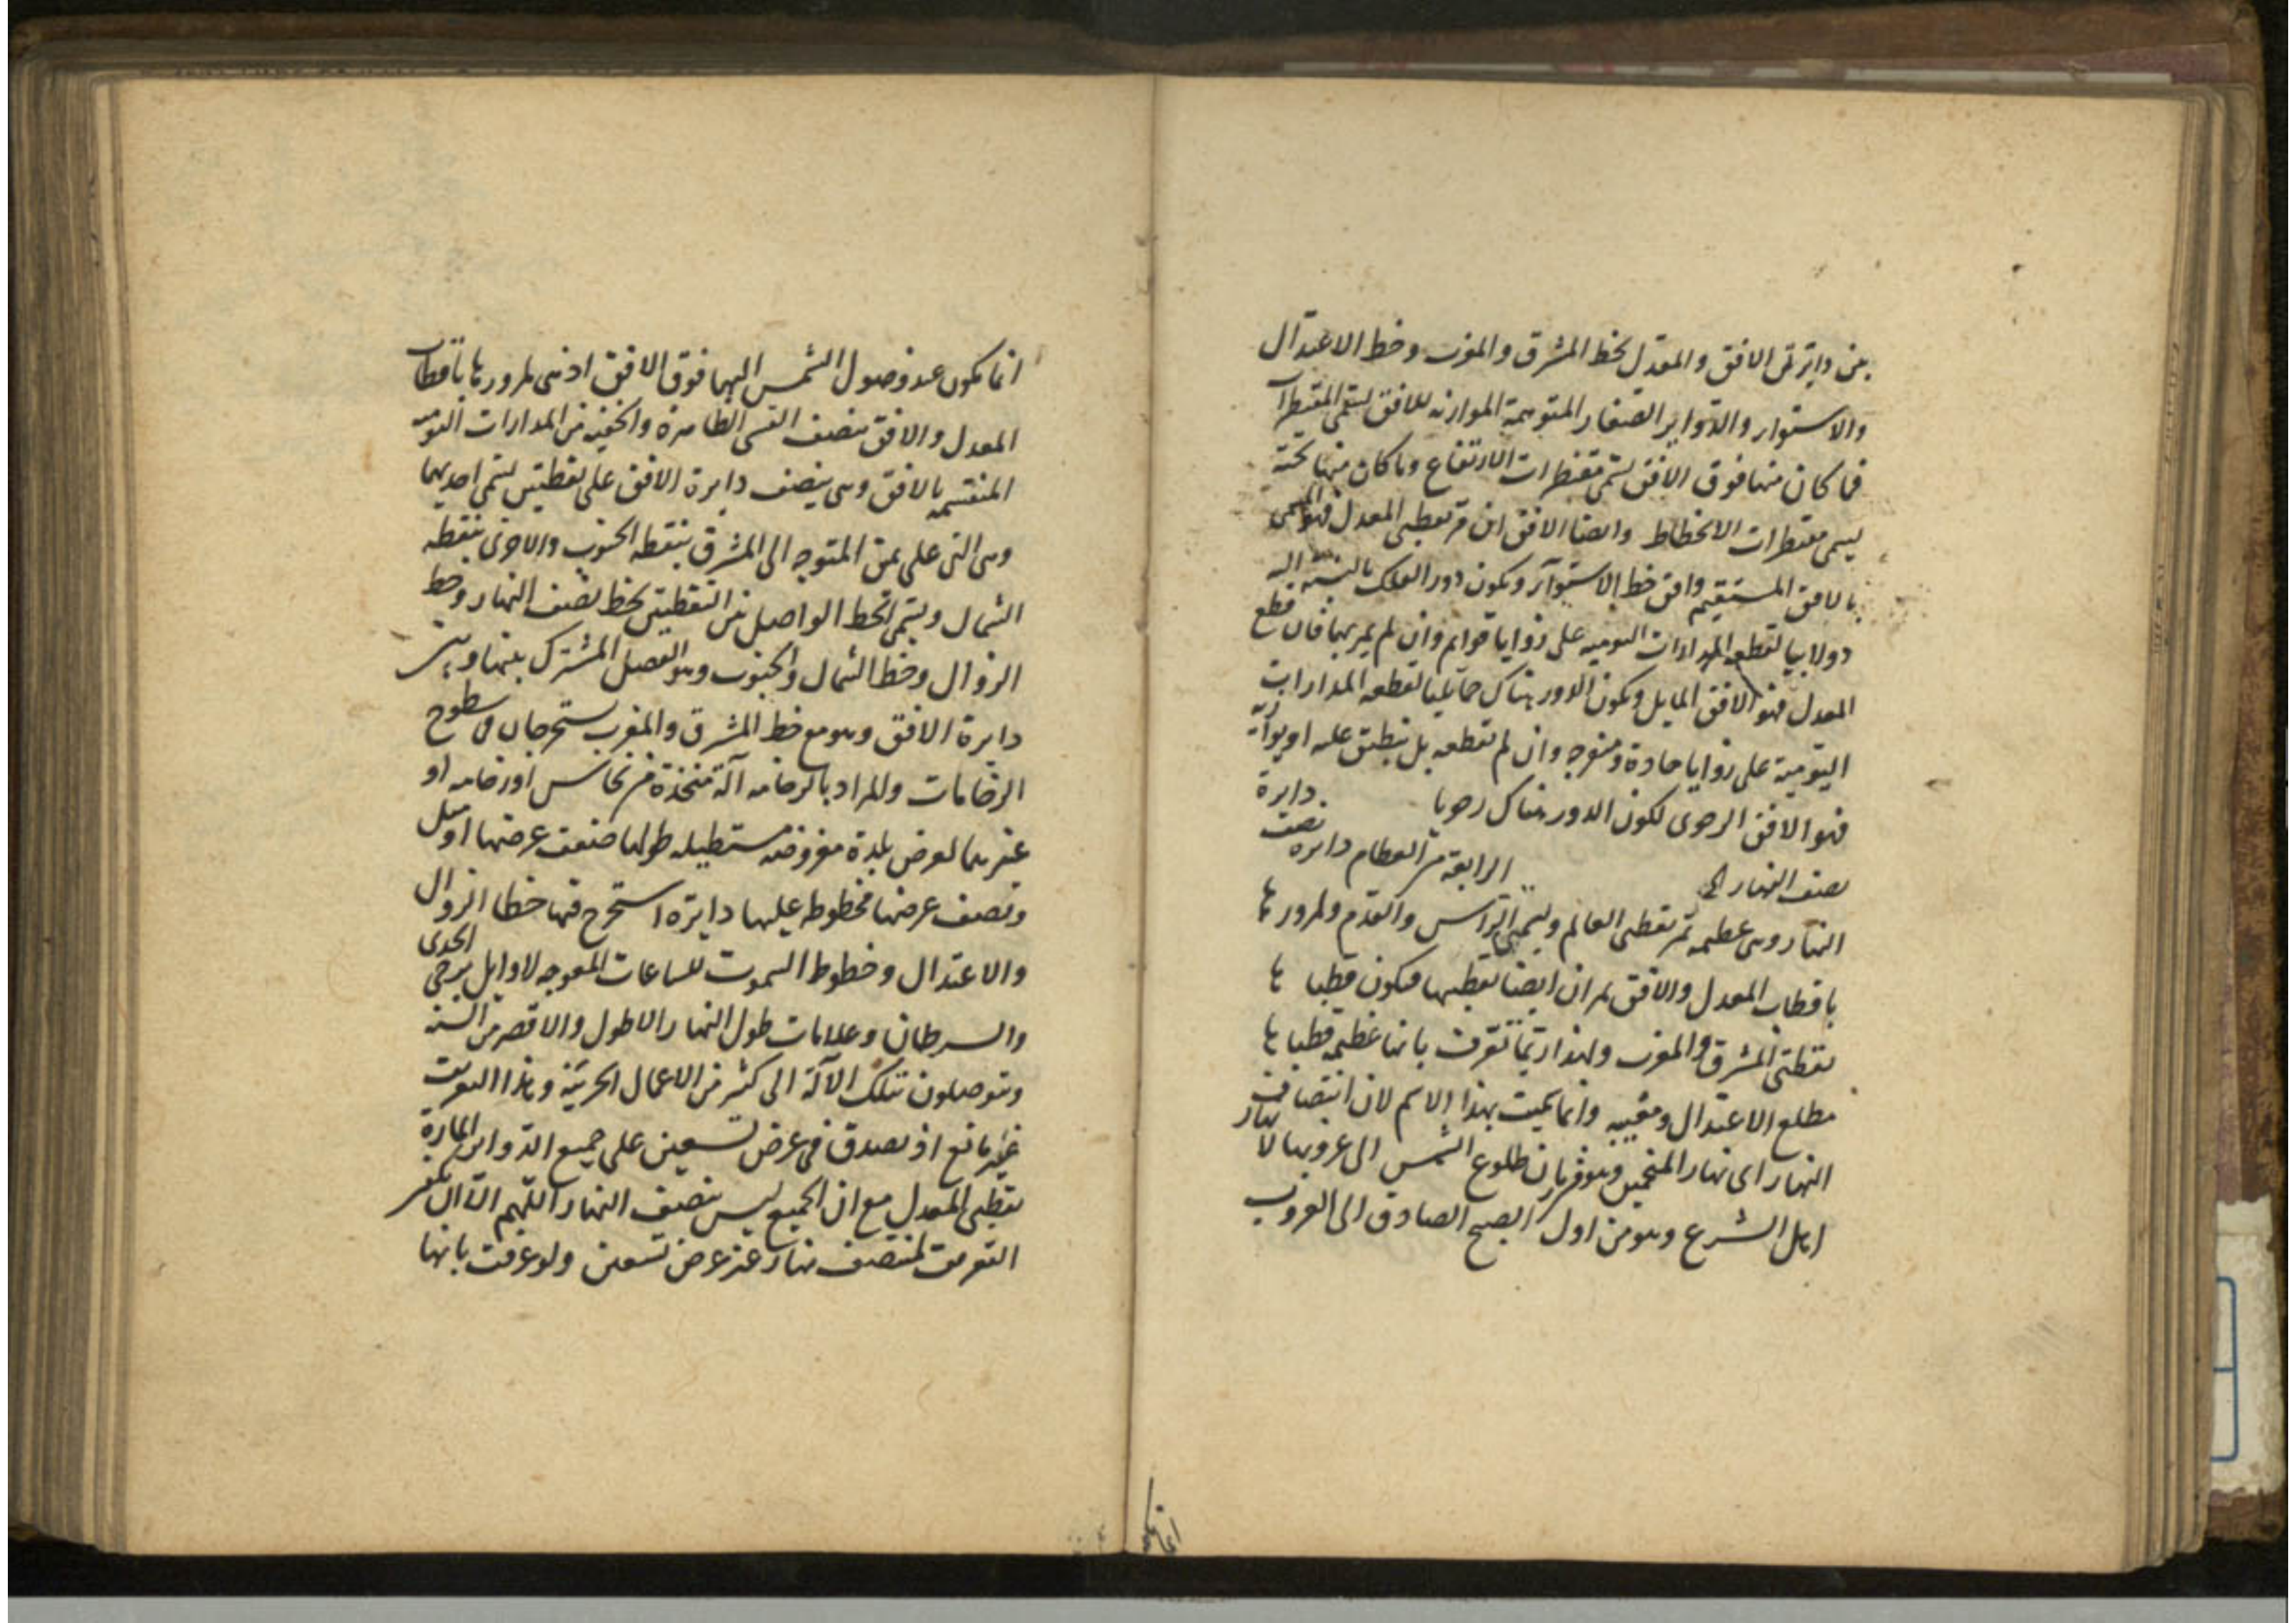 بين دايرتى الافق والمعدل بخط المشرق والمغرب وخط الاعتدال
والاستواء والدواير الصغار المتوهمة الموازية للافق تسمى المقنطرات
فما كان منها فوق الافق تسمى مقنطرات الارتفاع وما كان منها تحته
يسمى مقنطرات الانحطاط وايضا الافق ان مر بقطبى المعدل فهو المسمى
بالافق المستقيم وافق خط الاستواء ويكون دور الفلك بالنسبة اليه
دولابيا لقطعه المدارات اليومية على زوايا قوايم وان لم يمر بهما فان قطع
المعدل فهو الافق المايل ويكون الدور هناك حمايليا لقطعه المدارات
اليومية على زوايا حادة ومنفرجه وان لم تقطعه بل ينطبق عليه او يوازيه
فهو الافق الرحوى لكون الدور هناك رحويا دايرة
نصف النهار الرابعة من العظام دايرة نصف
النهار وهى عظيمة تمر بقطبى العالم وبسمتى الراس والقدم ولمرورها
باقطاب المعدل والافق يمران ايضا بقطبيها فيكون قطباها
نقطتى المشرق والمغرب ولهذا ربما تعرف بانها عظيمة قطباها
مطلع الاعتدال ومغيبه وانما سميت بهذا الاسم لان انتصاف
النهار اى نهار المنجمين وهو زمان طلوع الشمس الى غروبها لا نهار
اهل الشرع وهو من اول الصبح الصادق الى الغروب
انما يكون عند وصول الشمس اليها فوق الافق اذ هى لمرورها باقطاب
المعدل والافق تنصف القسى الظاهرة والخفية من المدارات اليومية
المنقسمة بالافق وهى ينصف دايرة الافق على نقطتين تسمى احديهما
وهى التى على يمين المتوجه الى المشرق بنقطة الجنوب والاخرى بنقطة
الشمال ويسمى الخط الواصل بين النقطتين بخط نصف النهار وخط
الزوال وخط الشمال والجنوب وهو الفصل المشترك بينها وبين
دايرة الافق وهو مع خط المشرق والمغرب يستخرجان فى سطوح
الرخامات والمراد بالرخامه آلة متخذة من نحاس او رخامه او
غيرهما لعرض بلدة مفروضة مستطيله طولها ضعف عرضها او مثل
ونصف عرضها مخطوطه عليها دايرة استخرج فيها خطا الزوال
والاعتدال وخطوط السموت للساعات المعوجه لاوايل برجى الجدى
والسرطان وعلامات طول النهار الاطول والاقصر من السنة
ويتوصلون بتلك الآلة الى كثير من الاعمال الجزئية وهذا التعريف
غير مانع اذ يصدق فى عرض تسعين على جميع الدواير المارة
بقطبى المعدل مع ان الجميع ليس بنصف النهار اللهم الا ان
التعريف لمنتصف نهار غير عرض تسعين ولو عرفت بانها